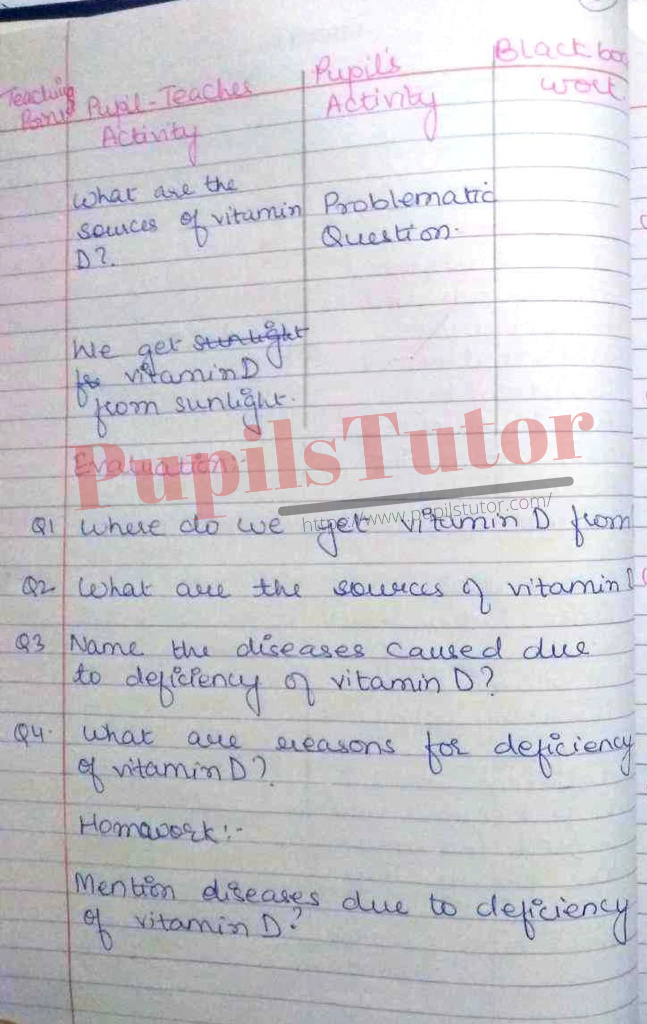 Teaching Points
Pupil-Teacher Activity
Pupil's Activity
Blackboa
work
What are the
sources of vitamin
D?.
Problematic
Question.
We get sunlight
vitamin D
from sunlight.
Evaluation:-
PupilsTutor
https://www.pupilstutor.com/
Q1 Where do we get vitamin D from
Q2 What are the sources of vitamin D
Q3 Name the diseases caused due
to deficiency of vitamin D?
Q4. What are reasons for deficiency
of vitamin D?
Homawork:-
Mention diseases due to deficiency
of vitamin D?